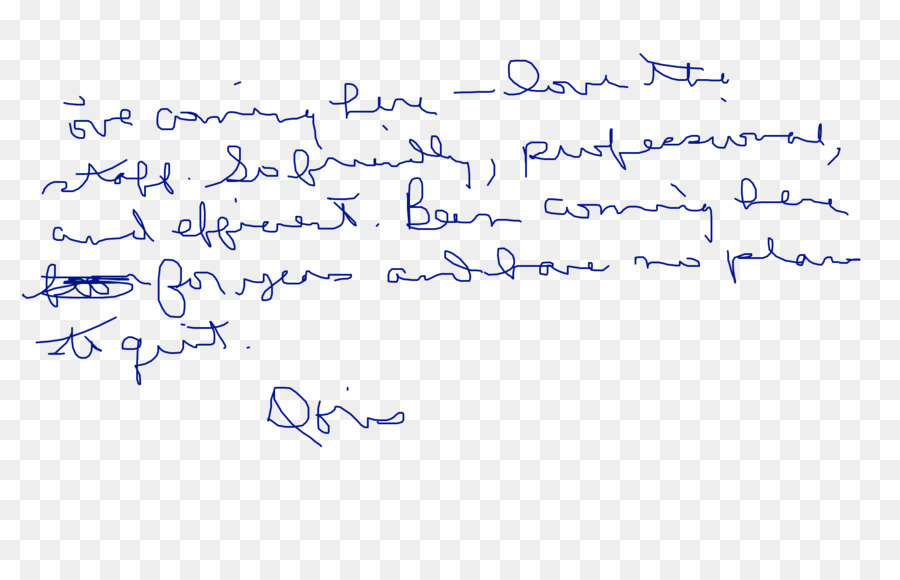 ove coming here — love the
staff. So friendly, professional,
and efficient. Been coming here
for years and have no plans
to quit.